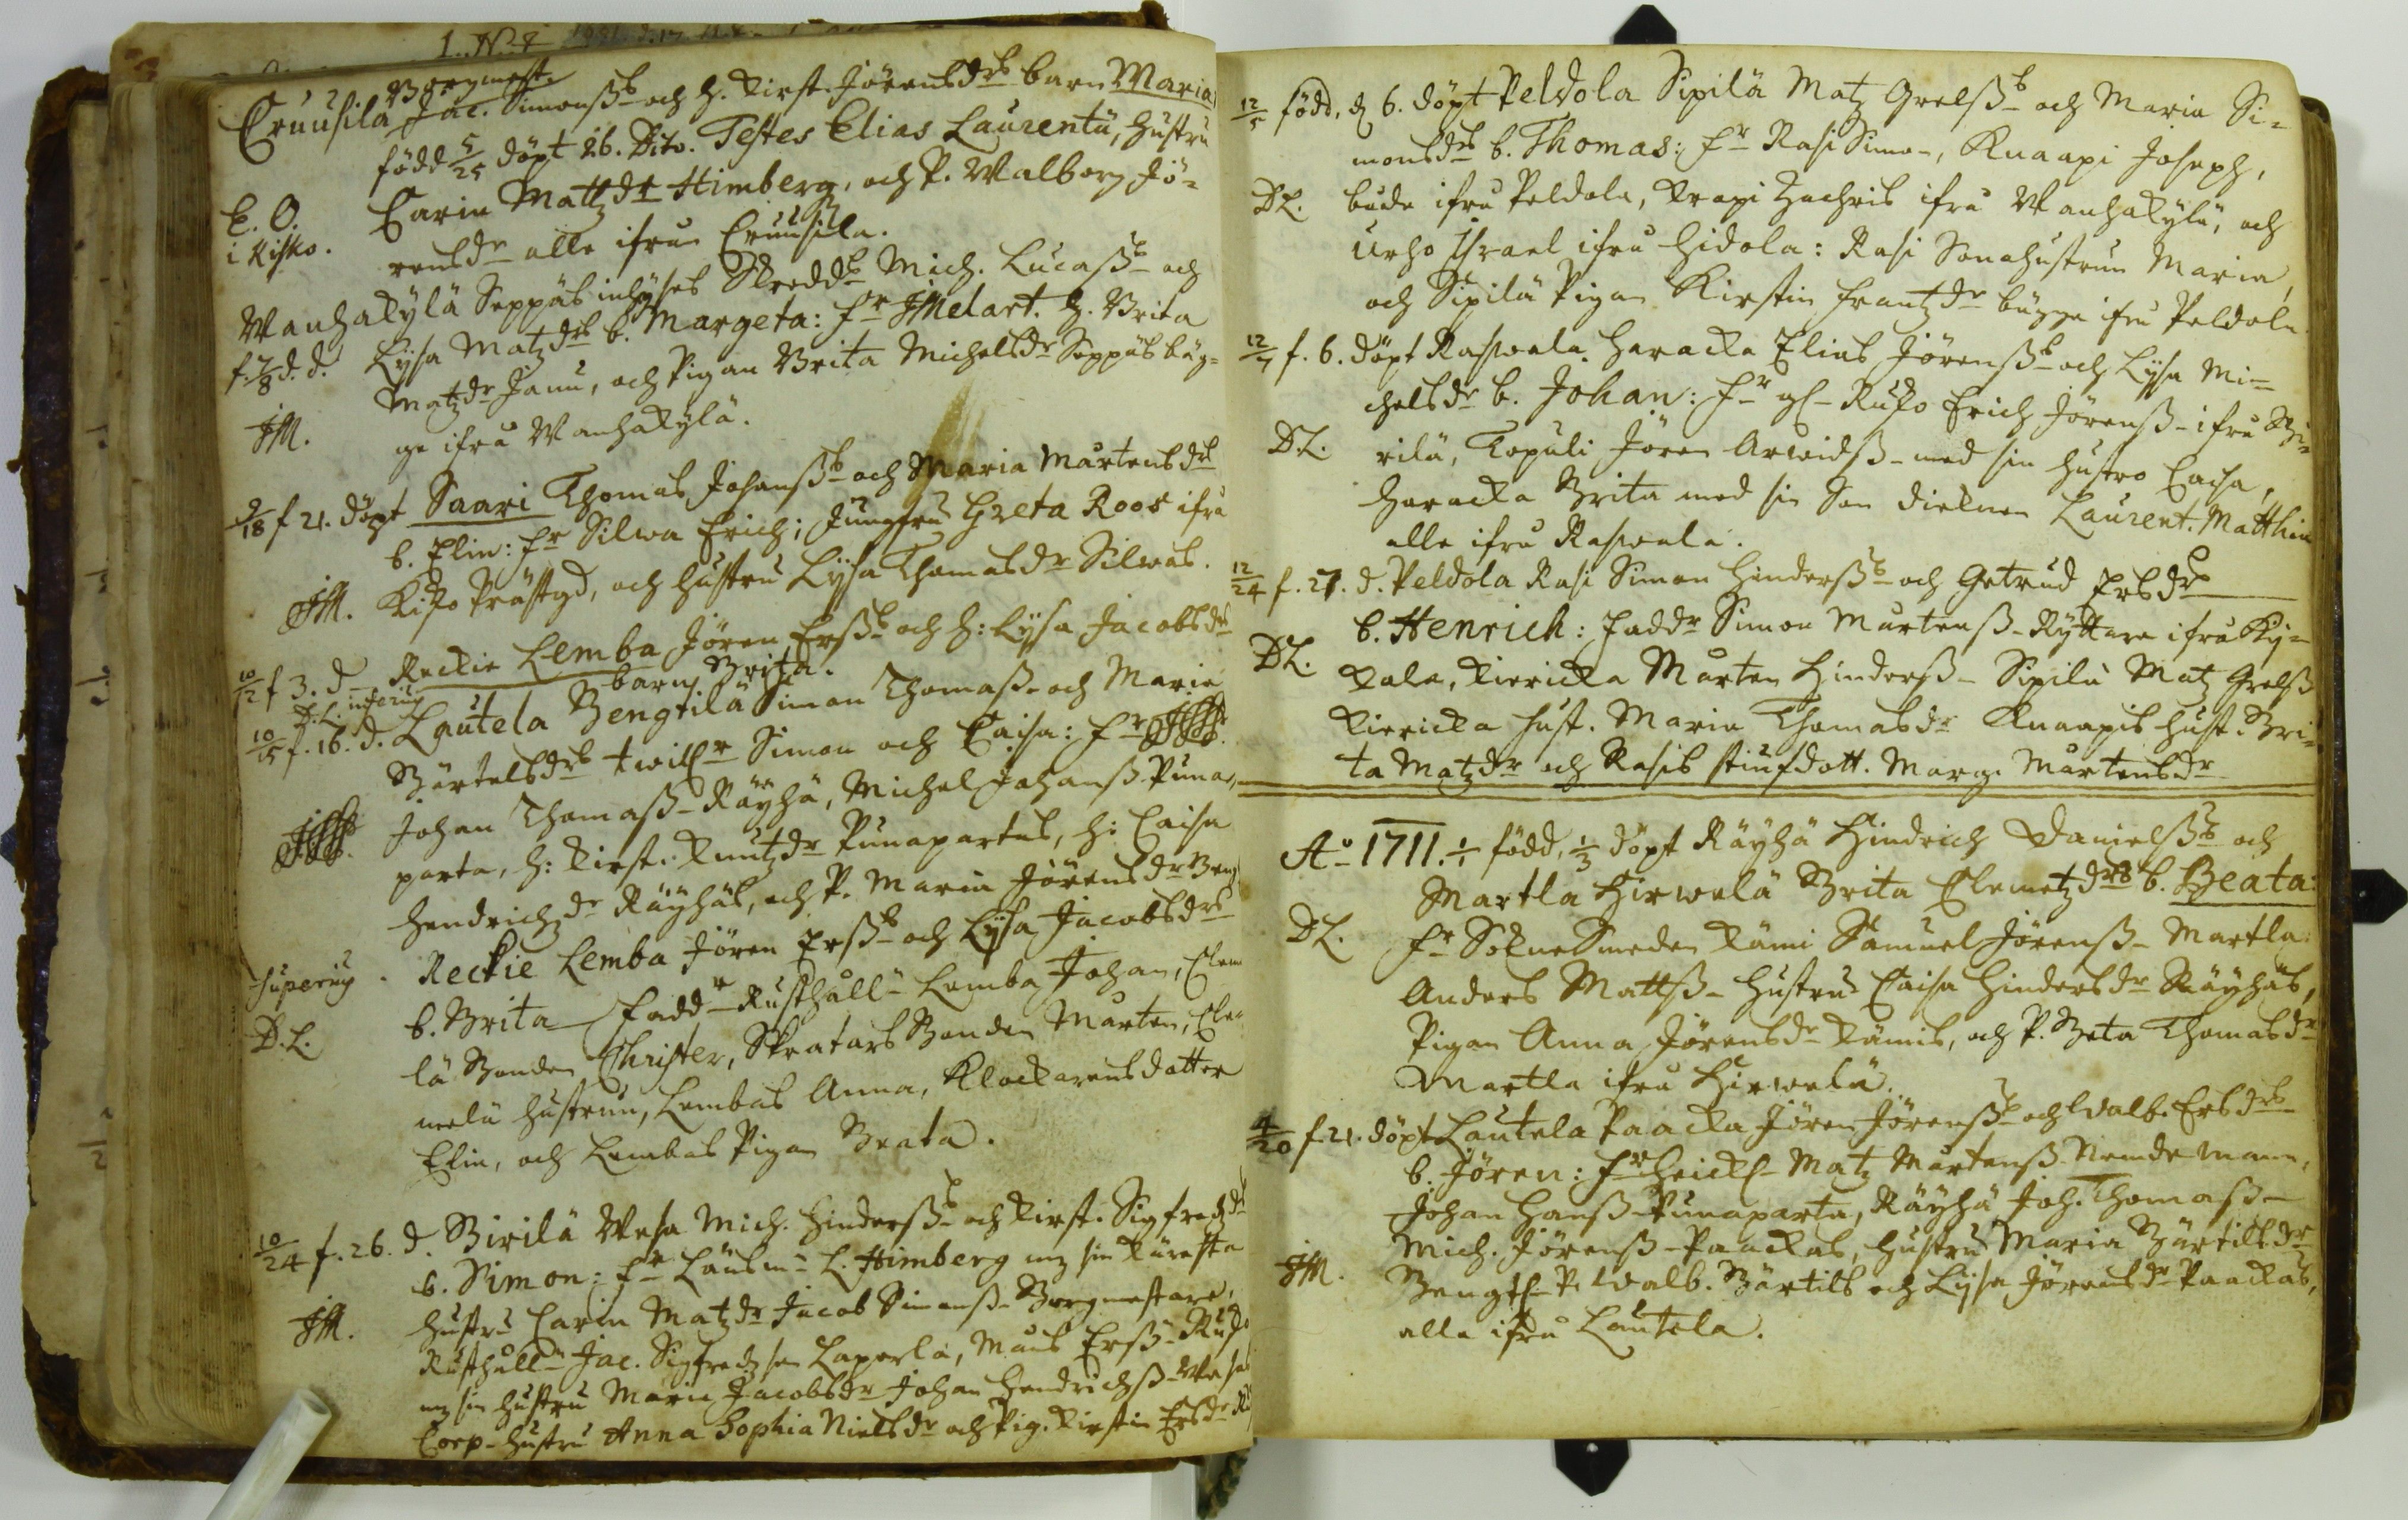 Borgmest.
Cruusila Jac. Simonssß och h. Kirst. Jörensdrs barn Maria
född 5/25 döpt 26. Dito. Testes Elias Laurentii, hustru
E. O. Carin Mattzdr Himberg, och P. Walborg Jö-
i Kisko. rensdr alle ifrån Cruusila.
Wanhakylä Seppäs inhyses Skredd. Mich. Lucasß och
f. 7/8 d. d. Lysa Matzdrs b. Margeta: fr JMelart. h. Brita
Matzdr Janu, och Pigan Brita Michelsdr Seppäs bäg-
JM. ge ifrå Wanhakylä.
9/18 f 21. döpt Saari Thomas Johanß och Maria Mårtensdrs
b. Elin: fr Silwa Erich; Jungfru Greta Roos ifrå
JM. Kisko Prästgd, och hustru Lysa Thomasdr Silwas.
10/2 f 3. d Reckie Lemba Jören Erßs och h: Lysa Jacobsdrs
barn Brita.
D. L. inferius
10/15 f. 16. d. Lautela Bengtilä Simon Thomaß och Maria
Bärtelsdrs twill Simon och Caisa: fr
Johan Thomaß Räyhä, Michel Johanß Puna-
parta, h: Kirst. Knutzdr Punapartas, h: Caisa
Hendrichzdr Räyhäs, och P. Maria Jörensdr Beng
superius Reckie Lemba Jören Erßs och Lysa Jacobsdrs
D. L. b. Brita Fadd Rusthåll Lemba Johan, Clem
lä Bonden Christer, Skratars Bonden Mårten, Cle
melä hustrun, Lembas Anna, Klockarens dotter
Elin, och Lembas Pigan Beata.
10/24 f. 26. d. Birilä Wesa Mich. Hinderßs och Kirst. Sigfredzdr
b. Simon: fr Länsm L. Himberg m sin Käresta
JM. hustru Carin Matzdr Jacob Simonß Borgmestare,
Rusthåll Jac. Sigfredzson Laperla, Måns Erß
m sin hustru Maria Jacobsdr Johan Hendrichß Wesas
Corp. hustru Anna Sophia Nielsdr och Pig. Kirstin Ersdr
12/5 född, d 6. döpt Peldola Sipilä Matz Grelßs och Maria Si-
monsdrs b. Thomas: fr Rasi Simon, Knaapi Joseph,
DL. både ifrå Peldola, Krapi Zachris ifrå Wanhakylä, och
Urho Israel ifrå Hidola: Rasi Sonahustrun Maria,
och Sipilä Pigan Kirstin Frantzdr bägge ifrå Peldola
12/4 f. 6. döpt Raswala Haracka Elias Jörenßs och Lysa Mi-
chelsdr b. Johan: fr Erich Jörenß ifrå Bi-
DL. rilä, Topuli Jören Arwidß med sin hustro Caisa,
Haracka Brita med sin Son Dieknen Laurent. Matthiæ
alle ifrå Raswala.
12/24 f. 27. d. Peldola Rasi Simon Hinderßs och Getrud Ersdrs
b. Henrich: Faddr Simon Mårtenß Ryttare ifrå Ky-
DL. kala, Kiericka Mårten Hinderß Sipilä Matz Grelß
Kiericka hust. Maria Thomasdr Knaapis hust. Bri-
ta Matzdr och Rasis stiufdott. Marg. Mårtensdr
Ao 1711. 1/1 född, 1/3 döpt Räyhä Hindrich Danielßs och
Martla Hirwelä Brita Clemetzdrs b. Beata:
DL. fr Sokne Smeden Kämi Samuel Jörenß Martla
Anders Mattß hustru Caisa Hindersdr Räyhäs,
Pigan Anna Jörensdr Kämis, och P. Beta Thomasdr
Martla ifrå Hirwelä.
4/20 f. 21. döpt Lautela Paacka Jören Jörenßs och Walb. Ersdrs
b. Jören: fr Matz Mårtenß Nemdeman,
Johan Hanß Punaparta, Räyhä Joh. Thomaß
Mich. Jörenß Paackas, hustru Maria Bärtilsdr
JM. P. Walb. Bärtils och Lysa Jörensdr Paackas,
alle ifrå Lautela.